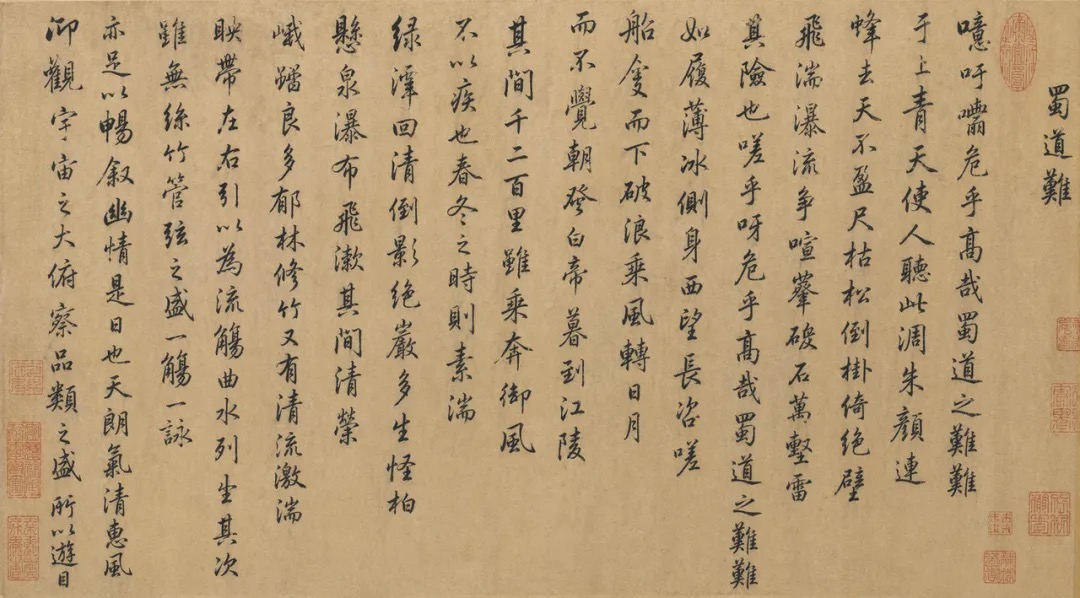 蜀道難
噫吁嚱危乎高哉蜀道之難難
于上青天使人聽此凋朱顏連
峰去天不盈尺枯松倒掛倚絕壁
飛湍瀑流爭喧石萬壑雷
其險也嗟乎呀危乎高哉蜀道之難難
如履薄冰側身西望長咨嗟
船而下破浪乘風轉日月
而不覺朝發白帝暮到江陵
其間千二百里雖乘奔御風
不以疾也春冬之時則素湍
緑潭回清倒影絕巖多生怪柏
懸泉瀑布飛漱其間清榮
峨良多郁林修竹又有清流激湍
映帶左右引以為流觴曲水列坐其次
雖無絲竹管弦之盛一觴一詠
亦足以暢叙幽情是日也天朗氣清惠風
仰觀宇宙之大俯察品類之盛所以遊目